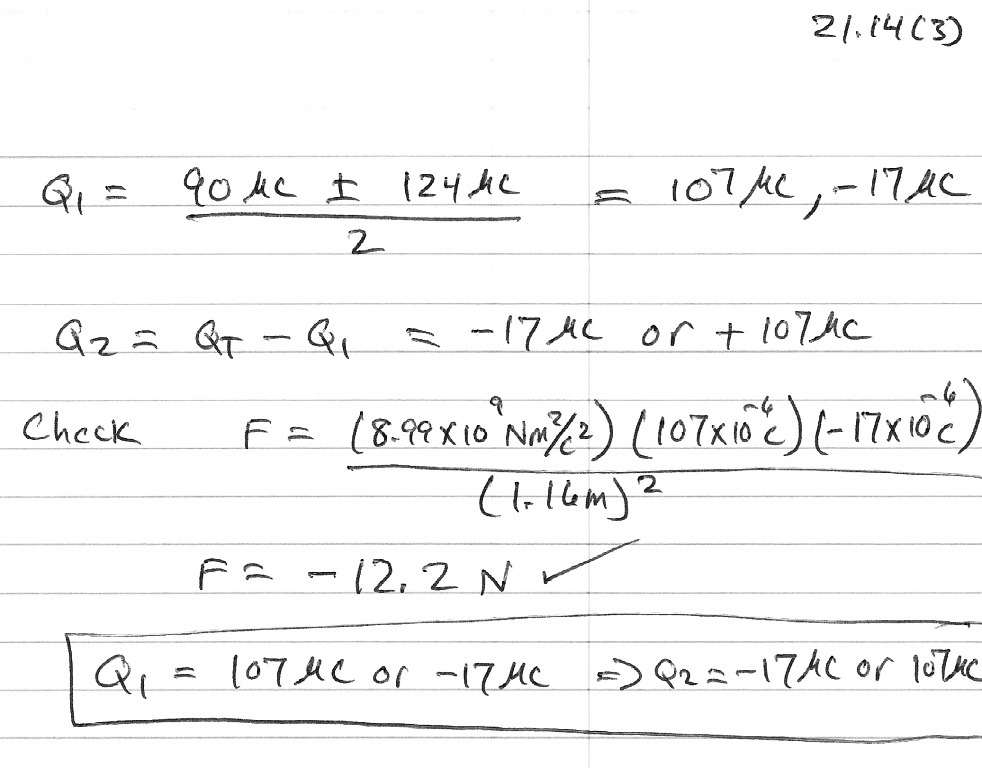 21.14(3)
Q1 = (90 μC ± 124 μC) / 2 = 107 μC, -17 μC
Q2 = QT - Q1 = -17 μC or +107 μC
Check F = (8.99x10^9 Nm²/c²) (107x10^-6 c) (-17x10^-6 c) / (1.16m)²
F = -12.2 N ✓
Q1 = 107 μC or -17 μC => Q2 = -17 μC or 107 μC